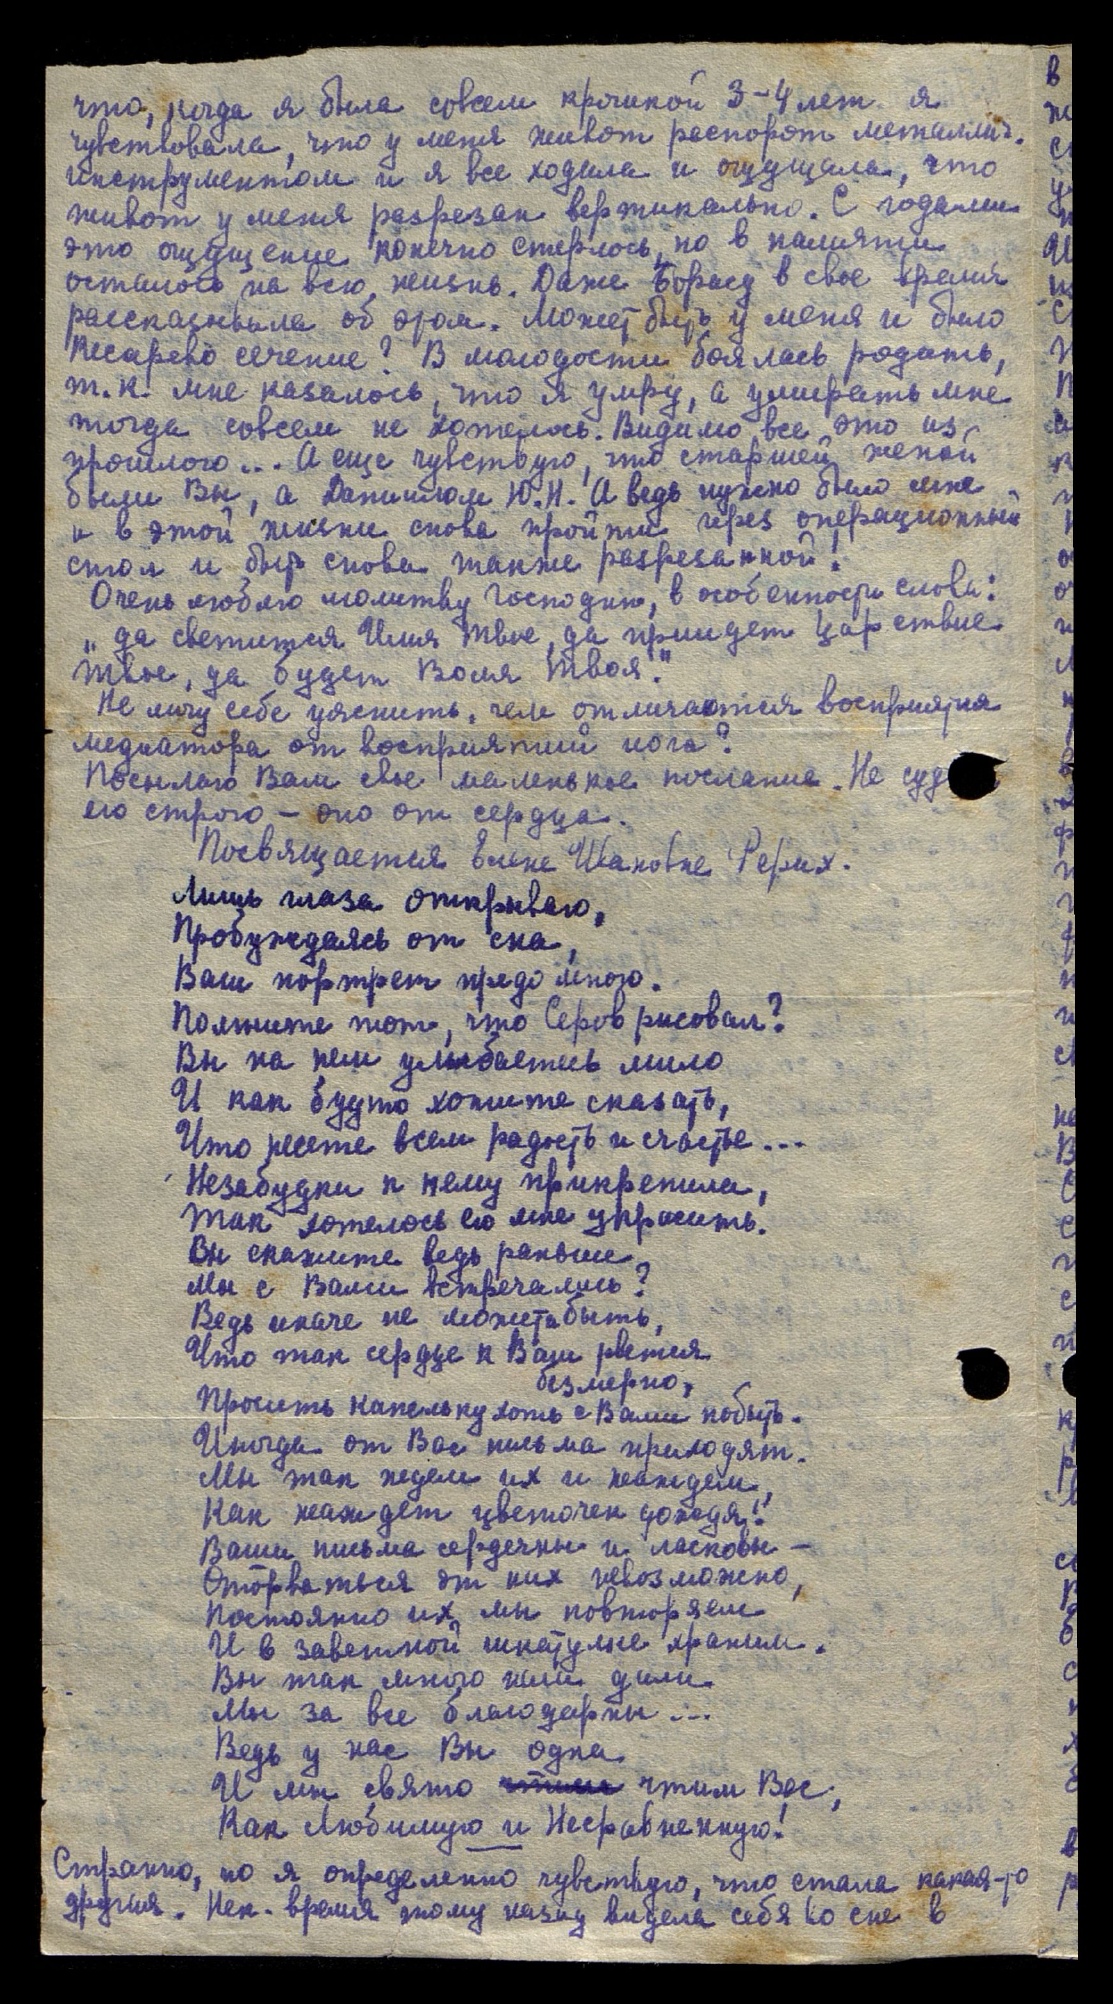 что, когда я была совсем крошкой 3-4 лет я
чувствовала, что у меня живот распорот металлич.
инструментом и я все ходила и ощущала, что
живот у меня разрезан вертикально. С годами
это ощущение конечно стерлось, но в памяти
осталось на всю жизнь. Даже Борису в свое время
рассказывала об этом. Может быть у меня и было
Кесарево сечение? В молодости боялась родить,
т.к. мне казалось, что я умру, а умирать мне
тогда совсем не хотелось. Видимо все это из
прошлого... А еще чувствую, что старшей женой
были Вы, а Дантистом Ю.Н.! А ведь нужно было мне
и в этой жизни снова пройти через операционный
стол и быть снова также разрезанной!
Очень люблю молитву Господню, в особенности слова:
„да светится Имя Твое, да приидет Царствие
Твое, да будет Воля Твоя!"
Не могу себе уяснить, чем отличаются восприятия
медиатора от восприятий йога?
Посылаю Вам свое маленькое послание. Не суд
его строго – оно от сердца.
Посвящается Елене Ивановне Рерих.
Лишь глаза открываю,
Пробуждаясь от сна,
Ваш портрет предо мною.
Помните тот, что Серов рисовал?
Вы на нем улыбаетесь мило
И как будто хотите сказать,
Что несете всем радость и счастье...
Незабудки к нему прикрепила,
Так хотелось его мне украсить.
Вы скажите ведь раньше
Мы с Вами встречались?
Ведь иначе не может быть,
Что так сердце к Вам рвется
безмерно,
Просить капельку хоть с Вами побыть.
Иногда от Вас письма приходят.
Мы так ждем их и жаждем,
Как жаждет цветочек дождя!
Ваши письма сердечны и ласковы –
Оторваться от них невозможно,
Постоянно их мы повторяем
И в заветной шкатулке храним.
Вы так много нам дали
Мы за все благодарны...
Ведь у нас Вы одна
И мы свято чтим Вас,
Как Любимую и Несравненную!
Странно, но я определенно чувствую, что стала какая-то
другая. Нек. время тому назад видела себя во сне в